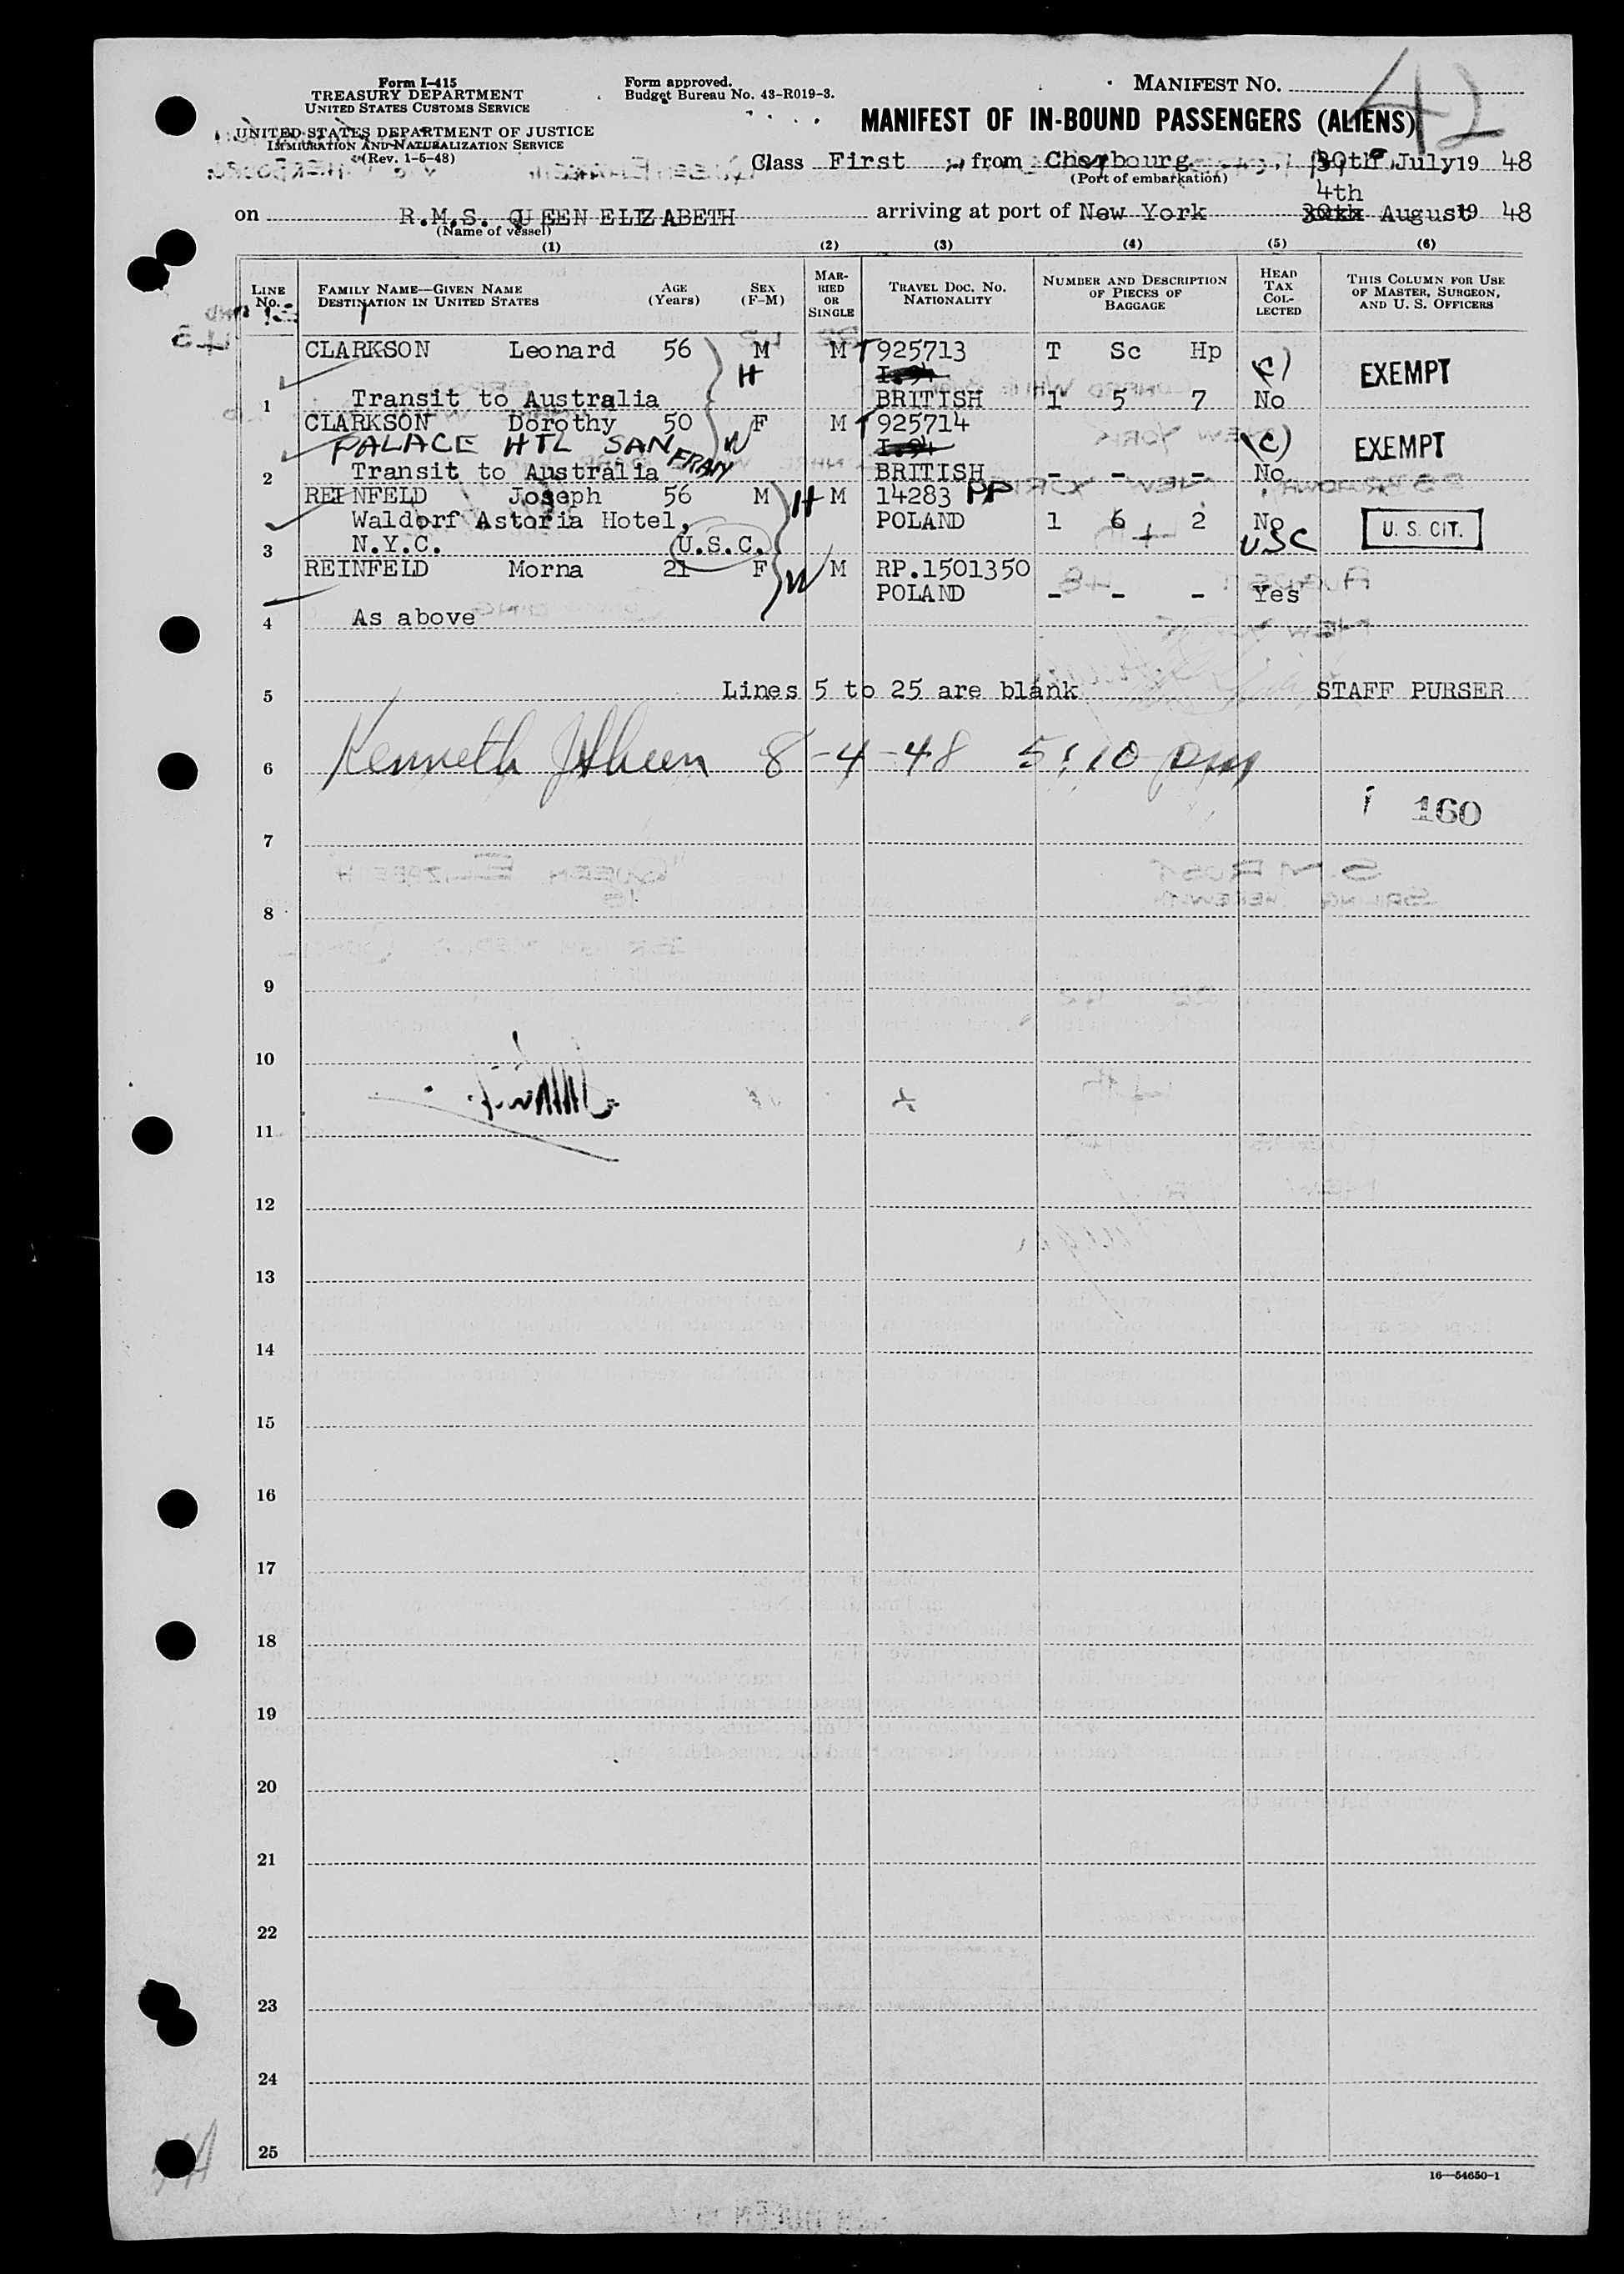 Form I-415
TREASURY DEPARTMENT
UNITED STATES CUSTOMS SERVICE
UNITED STATES DEPARTMENT OF JUSTICE
IMMIGRATION AND NATURALIZATION SERVICE
(Rev. 1-5-48)
Form approved.
Budget Bureau No. 43-R019-3.
MANIFEST NO. 42
MANIFEST OF IN-BOUND PASSENGERS (ALIENS)
Class First from Cherbourg, 30th July, 19 48
(Port of embarkation)
4th
on R.M.S. QUEEN ELIZABETH arriving at port of New York August 19 48
(Name of vessel)
(1) (2) (3) (4) (5) (6)
LINE No.
FAMILY NAME—GIVEN NAME
DESTINATION IN UNITED STATES
AGE (Years)
SEX (F-M)
MARRIED OR SINGLE
TRAVEL DOC. NO. NATIONALITY
NUMBER AND DESCRIPTION OF PIECES OF BAGGAGE
HEAD TAX COLLECTED
THIS COLUMN FOR USE OF MASTER, SURGEON, AND U. S. OFFICERS
CLARKSON Leonard 56 M M T 925713 T Sc Hp
H I.94 (c) EXEMPT
1 Transit to Australia BRITISH 1 5 7 No
CLARKSON Dorothy 50 F M T 925714
PALACE HTL SAN FRAN W I.94 (c) EXEMPT
2 Transit to Australia BRITISH - - - No
REINFELD Joseph 56 M H M 14283 PP
Waldorf Astoria Hotel, POLAND 1 6 2 No U. S. CIT.
3 N.Y.C. U.S.C. USC
REINFELD Morna 21 F W M RP.1501350
POLAND - - - Yes
4 As above
5 Lines 5 to 25 are blank STAFF PURSER
6 8-4-48 5:10 pm
160
7
8
9
10
11
12
13
14
15
16
17
18
19
20
21
22
23
24
25
16—54650-1